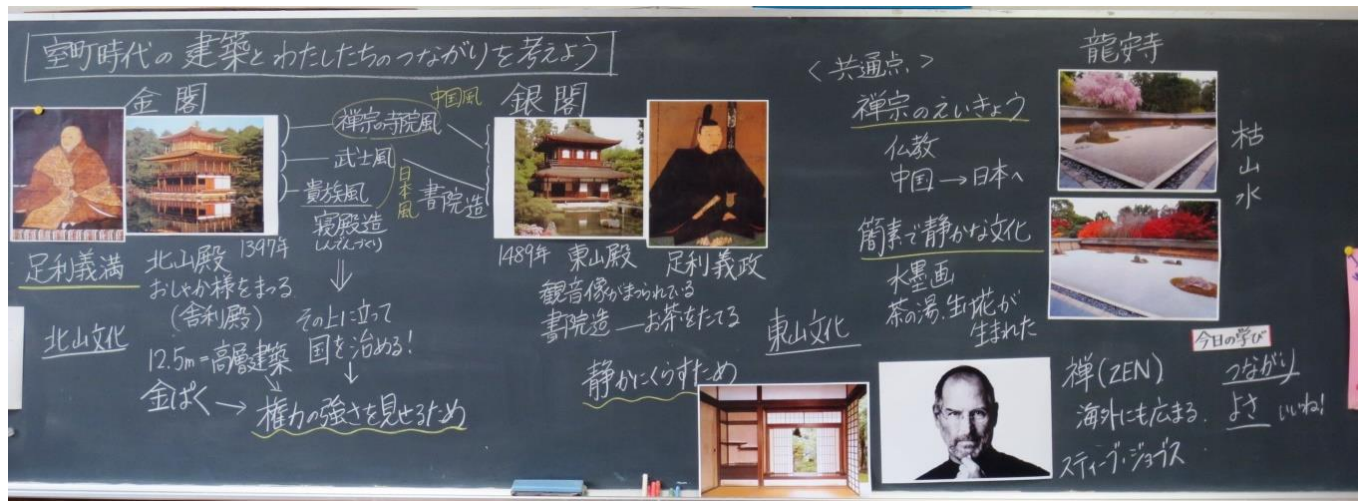 室町時代の建築とわたしたちのつながりを考えよう
金閣
足利義満
北山殿 1397年
おしゃか様をまつる
(舎利殿)
北山文化
12.5m=高層建築
金ぱく→
権力の強さを見せるため
中国風
禅宗の寺院風
武士風
貴族風
日本風
寝殿造
しんでんづくり
書院造
その上に立って
国を治める!
銀閣
1489年 東山殿
足利義政
観音像がまつられている
書院造—お茶をたてる
東山文化
静かにくらすため
<共通点>
禅宗のえいきょう
仏教
中国→日本へ
簡素で静かな文化
水墨画
茶の湯、生け花が
生まれた
龍安寺
枯山水
今日の学び
禅(ZEN)
海外にも広まる.
スティーブ・ジョブズ
つながり
よさ いいね!